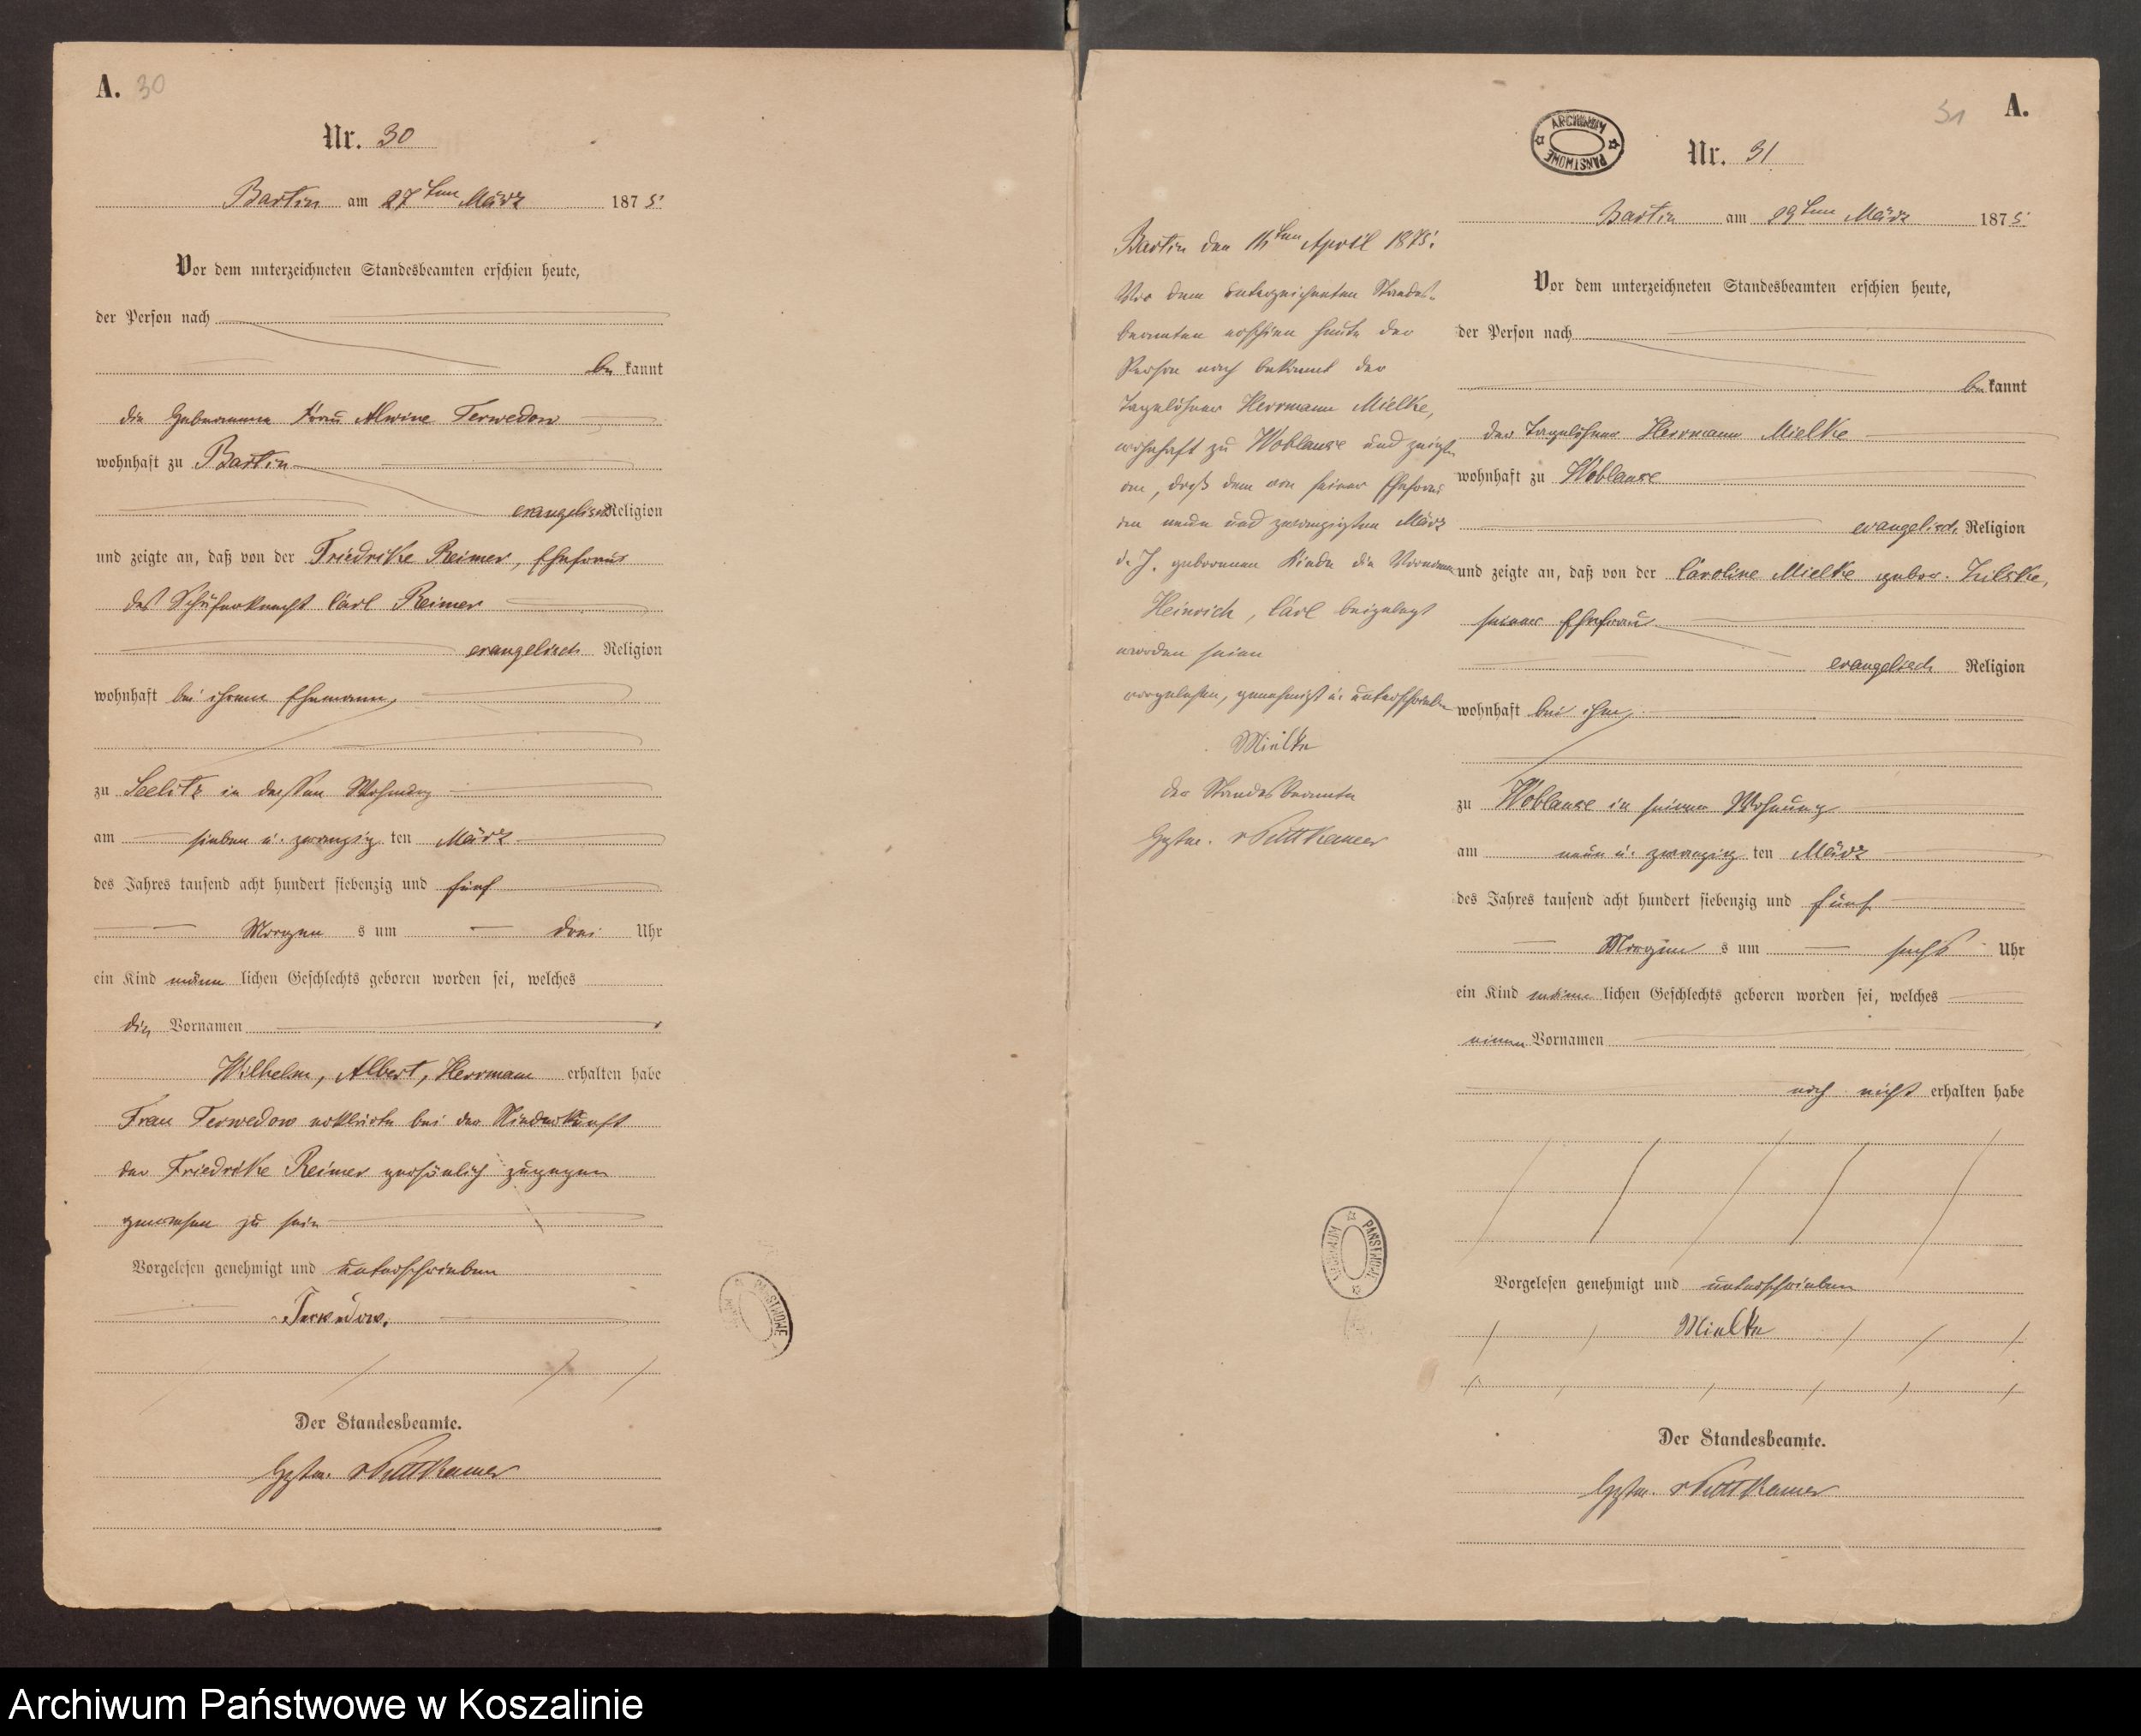 A. 30
Nr. 30
Bartin am 27ten März 1875
Vor dem unterzeichneten Standesbeamten erschien heute,
der Person nach
be kannt
die Hebamme Frau Alwine Terwedow
wohnhaft zu Bartin
evangelisch Religion
und zeigte an, daß von der Friedrike Reimer, Ehefrau
des Schäferknecht Carl Reimer
evangelisch Religion
wohnhaft bei ihrem Ehemann,
zu Seelitz in dessen Wohnung
am sieben u. zwanzig ten März
des Jahres tausend acht hundert siebenzig und fünf
Morgen s um drei Uhr
ein Kind männ lichen Geschlechts geboren worden sei, welches
die Vornamen
Wilhelm, Albert, Herrmann erhalten habe
Frau Terwedow erklärte bei der Niederkunft
der Friedrike Reimer persönlich zugegen
gewesen zu sein
Vorgelesen genehmigt und unterschrieben
Terwedow.
Der Standesbeamte.
v Puttkamer
Bartin den 14ten April 1875.
Vor dem unterzeichneten Standes-
beamten erschien heute der
Person nach bekannt der
Tagelöhner Herrmann Mielke,
wohnhaft zu Woblanse und zeigte
an, daß dem von seiner Ehefrau
am neun und zwanzigsten März
d. J. geborenen Kinde die Vornamen
Heinrich, Carl beigelegt
worden seien
vorgelesen, genehmigt u. unterschrieben
Mielke
der Standesbeamte
v Puttkamer
31 A.
ARCHIWUM PAŃSTWOWE
Nr. 31
Bartin am 29ten März 1875
Vor dem unterzeichneten Standesbeamten erschien heute,
der Person nach
be kannt
der Tagelöhner Herrmann Mielke
wohnhaft zu Woblanse
evangelisch Religion
und zeigte an, daß von der Caroline Mielke gebor. Zielske,
seiner Ehefrau
evangelisch Religion
wohnhaft bei ihm,
zu Woblanse in seiner Wohnung
am neun u. zwanzig ten März
des Jahres tausend acht hundert siebenzig und fünf
Morgen s um sechs Uhr
ein Kind männ lichen Geschlechts geboren worden sei, welches
einen Vornamen
noch nicht erhalten habe
Vorgelesen genehmigt und unterschrieben
Mielke
Der Standesbeamte.
v Puttkamer
ARCHIWUM PAŃSTWOWE
PAŃSTWOWE
Archiwum Państwowe w Koszalinie